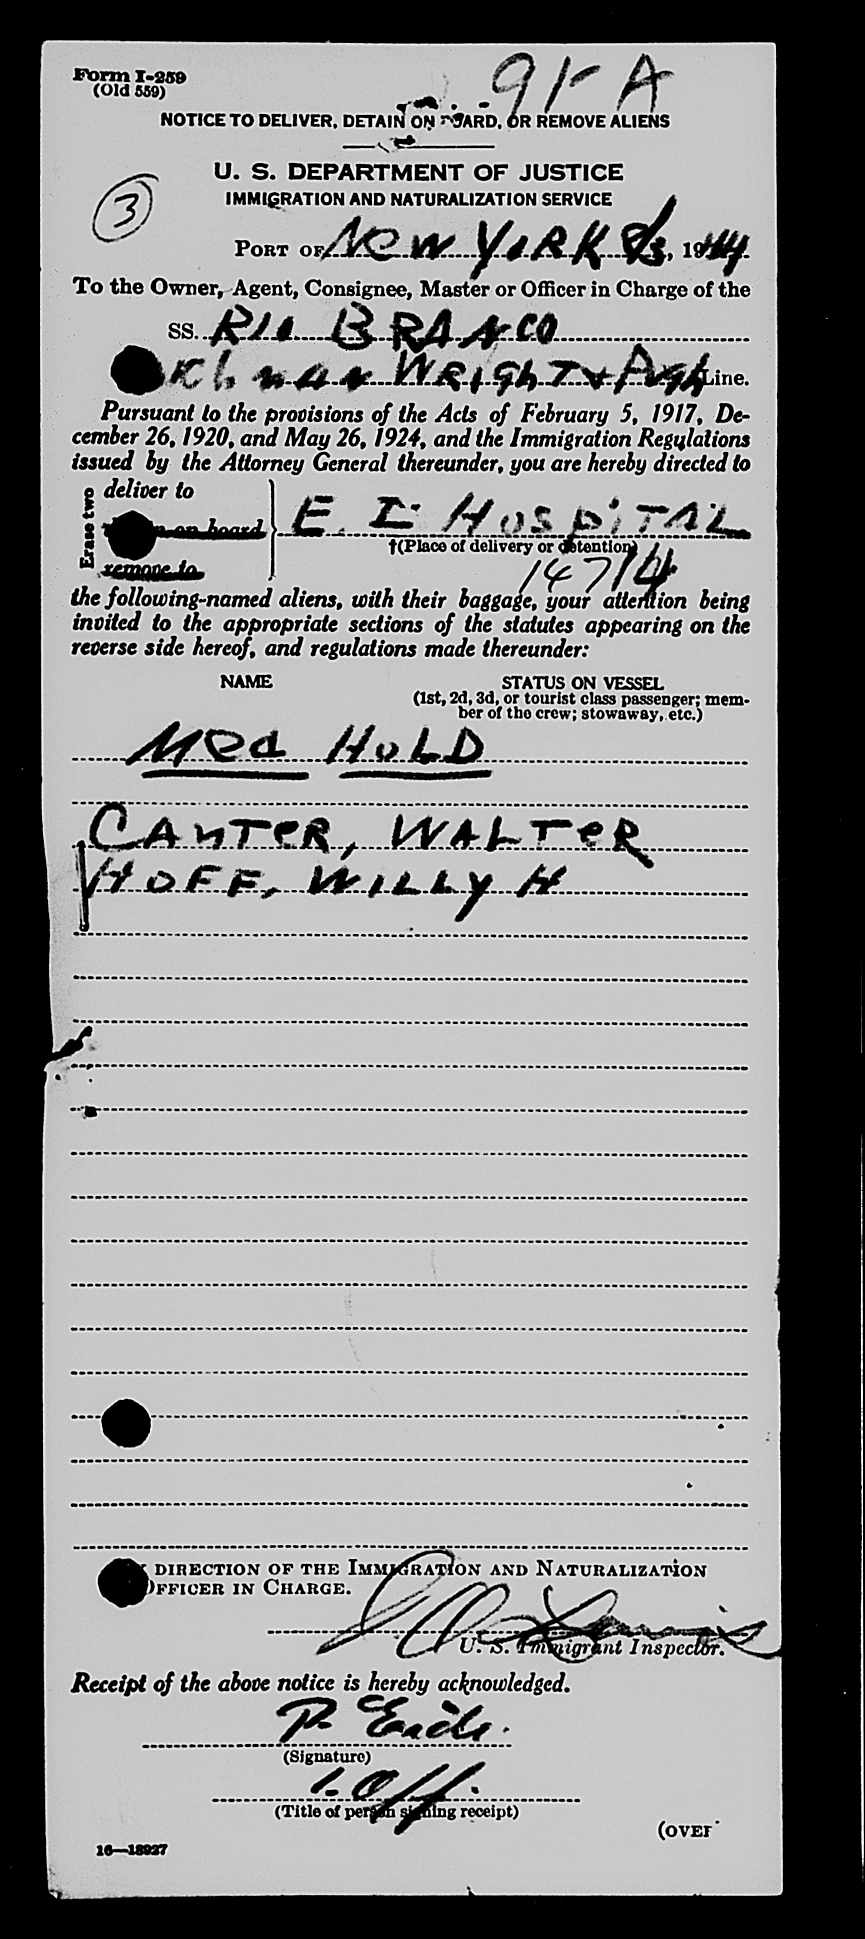 Form I-259
(Old 559)
91-A
NOTICE TO DELIVER, DETAIN ON BOARD, OR REMOVE ALIENS
U. S. DEPARTMENT OF JUSTICE
IMMIGRATION AND NATURALIZATION SERVICE
3
PORT OF NEW YORK 8/3, 1944
To the Owner, Agent, Consignee, Master or Officer in Charge of the
SS. RIO BRANCO
WRIGHT & Pugh Line.
Pursuant to the provisions of the Acts of February 5, 1917, De-
cember 26, 1920, and May 26, 1924, and the Immigration Regulations
issued by the Attorney General thereunder, you are hereby directed to
Erase two
deliver to
on board
E. I HOSPITAL
†(Place of delivery or detention)
remove to
14714
the following-named aliens, with their baggage, your attention being
invited to the appropriate sections of the statutes appearing on the
reverse side hereof, and regulations made thereunder:
NAME STATUS ON VESSEL
(1st, 2d, 3d, or tourist class passenger; mem-
ber of the crew; stowaway, etc.)
Med HOLD
CANTER, WALTER
HOFF, WILLY H
DIRECTION OF THE IMMIGRATION AND NATURALIZATION
OFFICER IN CHARGE.
U. S. Immigrant Inspector.
Receipt of the above notice is hereby acknowledged.
(Signature)
1. Off.
(Title of person signing receipt)
(OVER
16—18927